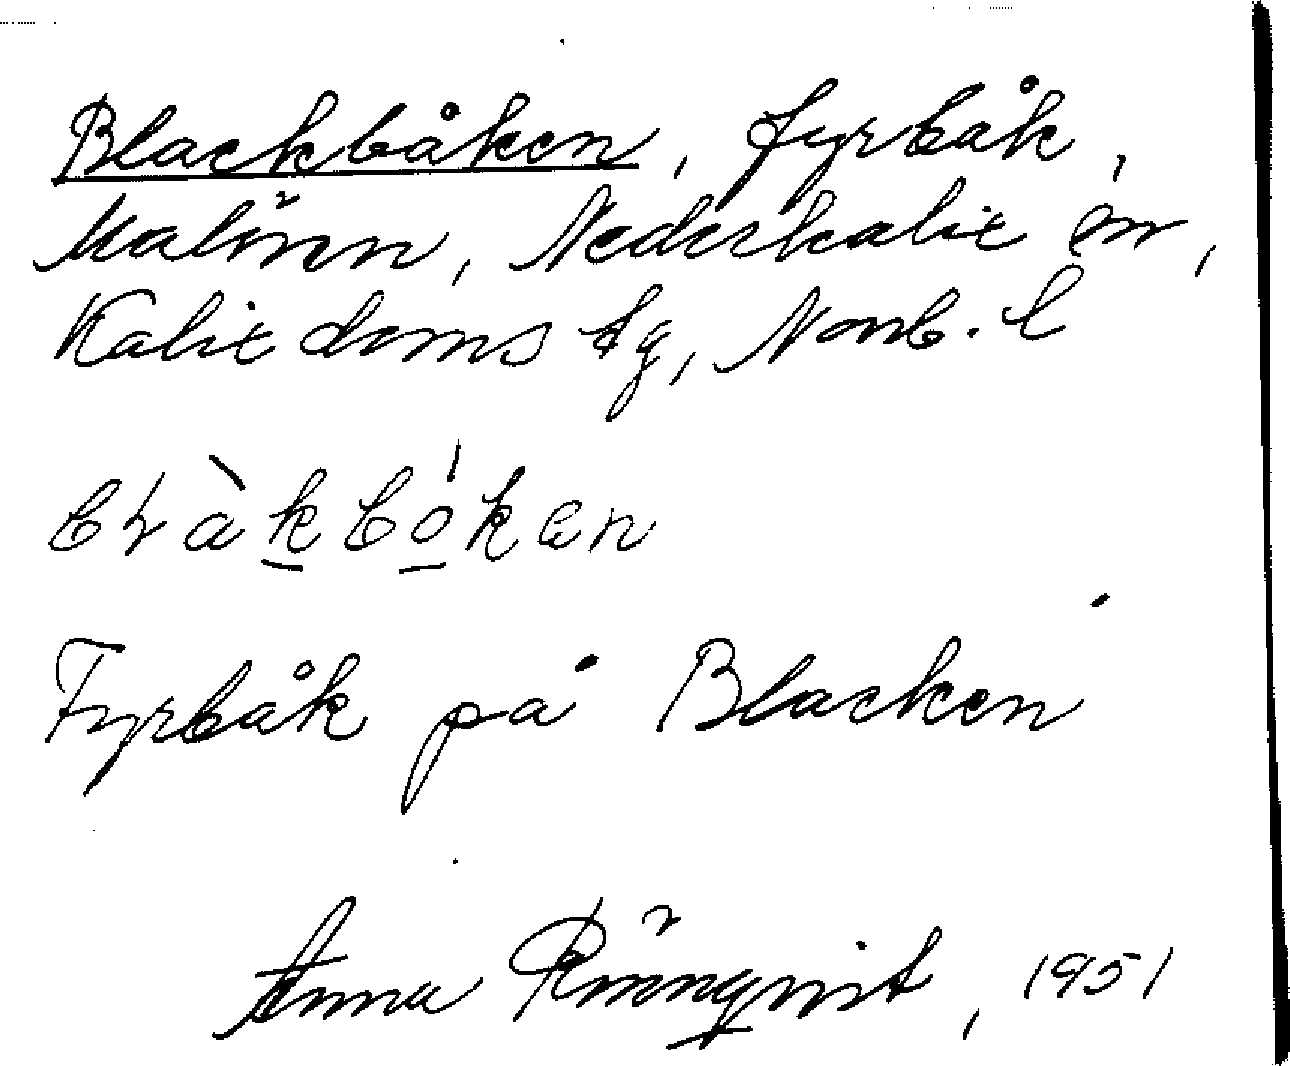 Blackbåken, fyrbåk,
Malören, Nederkalix sn,
Kalix doms tg, Norrb. l
blàkbókən
Fyrbåk på Blacken
Anna Rönnqvist, 1951